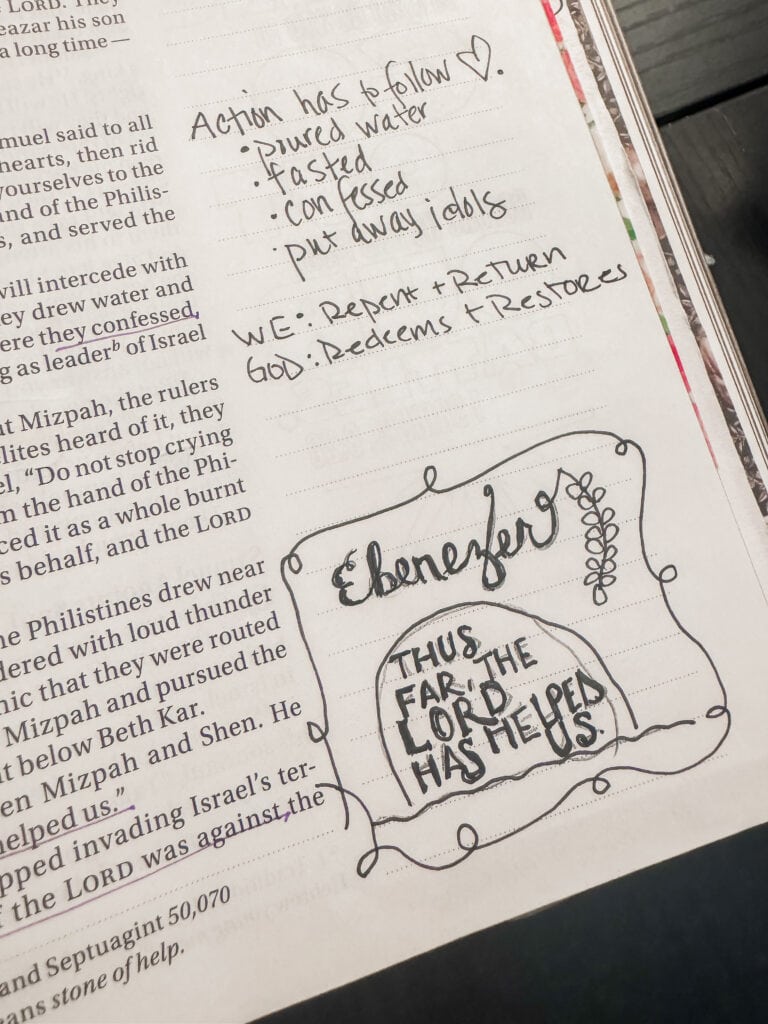 LORD. They
eazar his son
a long time—
muel said to all
hearts, then rid
yourselves to the
and of the Philis-
s, and served the
will intercede with
ey drew water and
ere they confessed,
g as leaderᵇ of Israel
at Mizpah, the rulers
elites heard of it, they
el, “Do not stop crying
m the hand of the Phi-
ced it as a whole burnt
s behalf, and the LORD
he Philistines drew near
dered with loud thunder
nic that they were routed
Mizpah and pursued the
nt below Beth Kar.
en Mizpah and Shen. He
helped us.”
pped invading Israel’s ter-
f the LORD was against the
and Septuagint 50,070
ans stone of help.
Action has to follow ♡.
• poured water
• fasted
• confessed
• put away idols
WE: Repent + Return
GOD: Redeems + Restores
Ebenezer
THUS
FAR, THE
LORD
HAS HELPED
US.